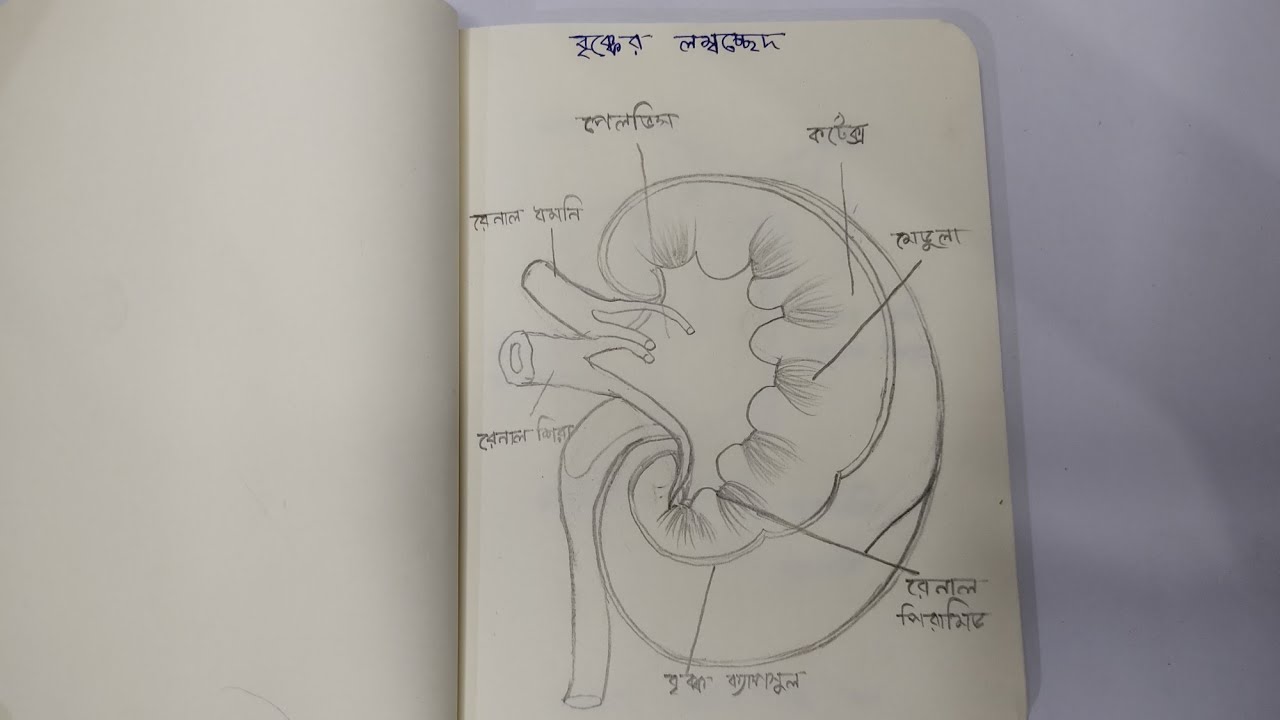 বৃক্কের লম্বচ্ছেদ
পেলভিস
কর্টেক্স
রেনাল ধমনি
মেডুলা
রেনাল শিরা
রেনাল
পিরামিড
বৃক্ক ক্যাপসুল